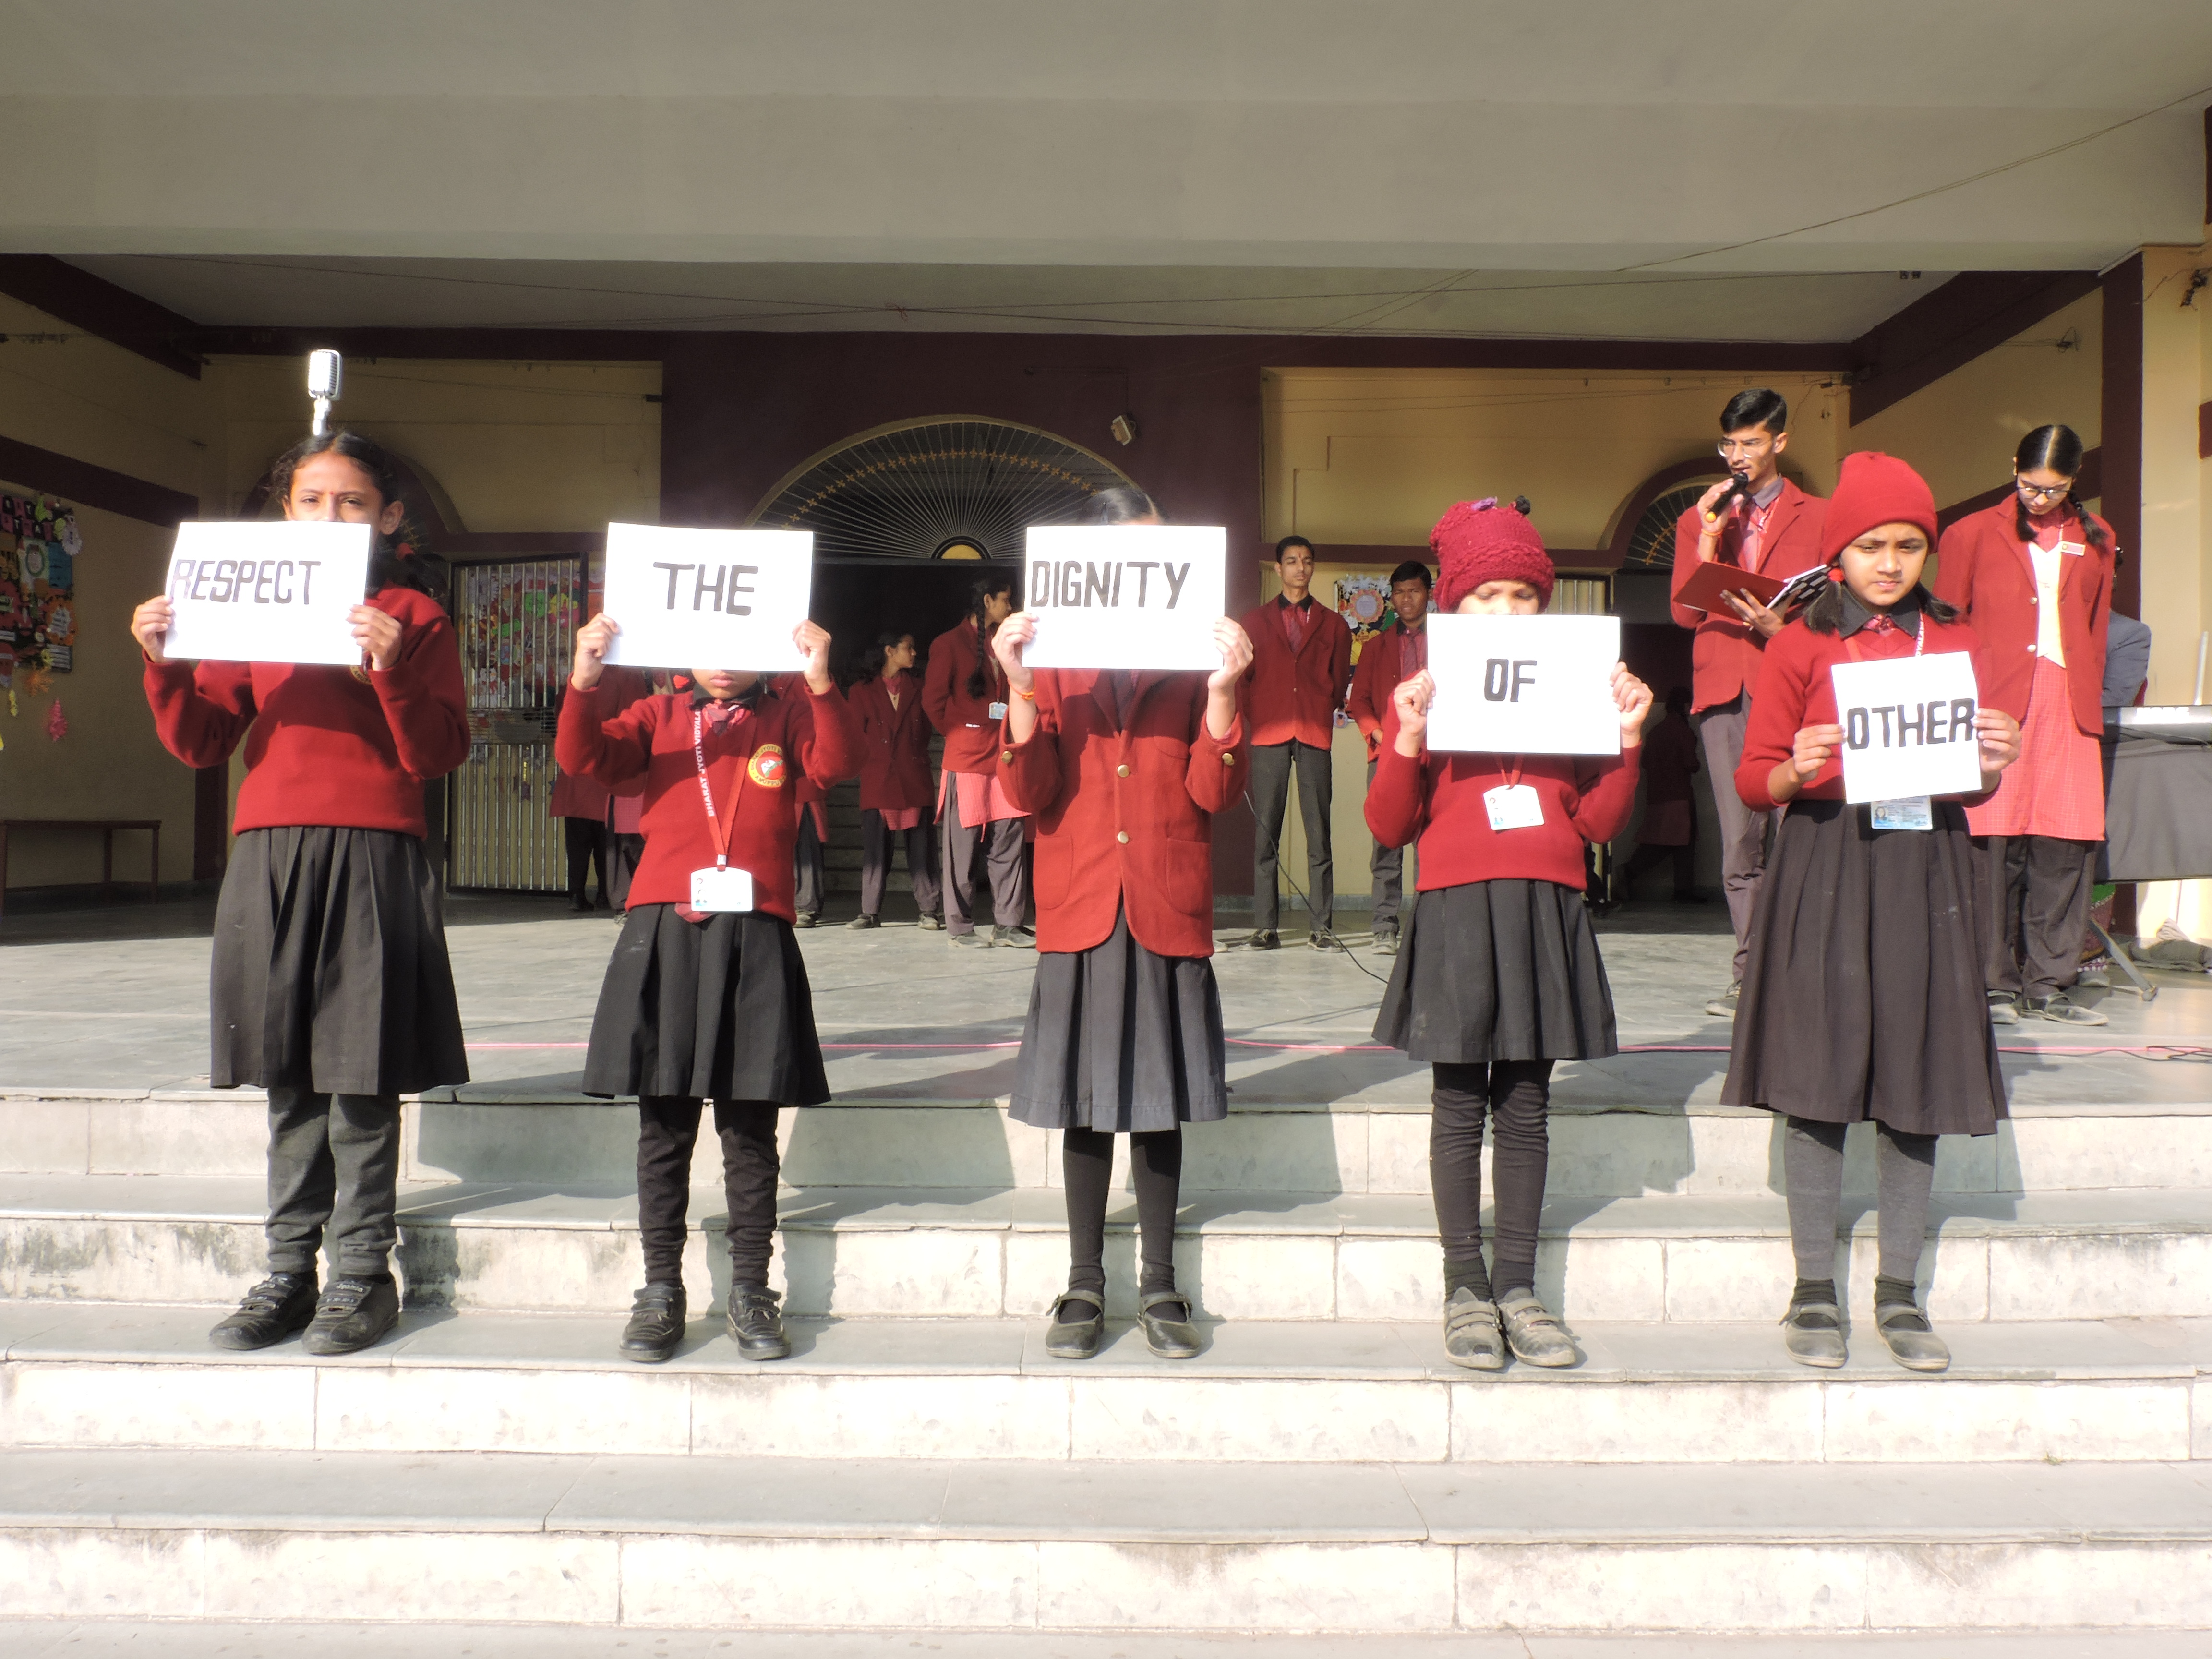 RESPECT
THE
DIGNITY
OF
OTHER
BHARAT JYOTI VIDYALA